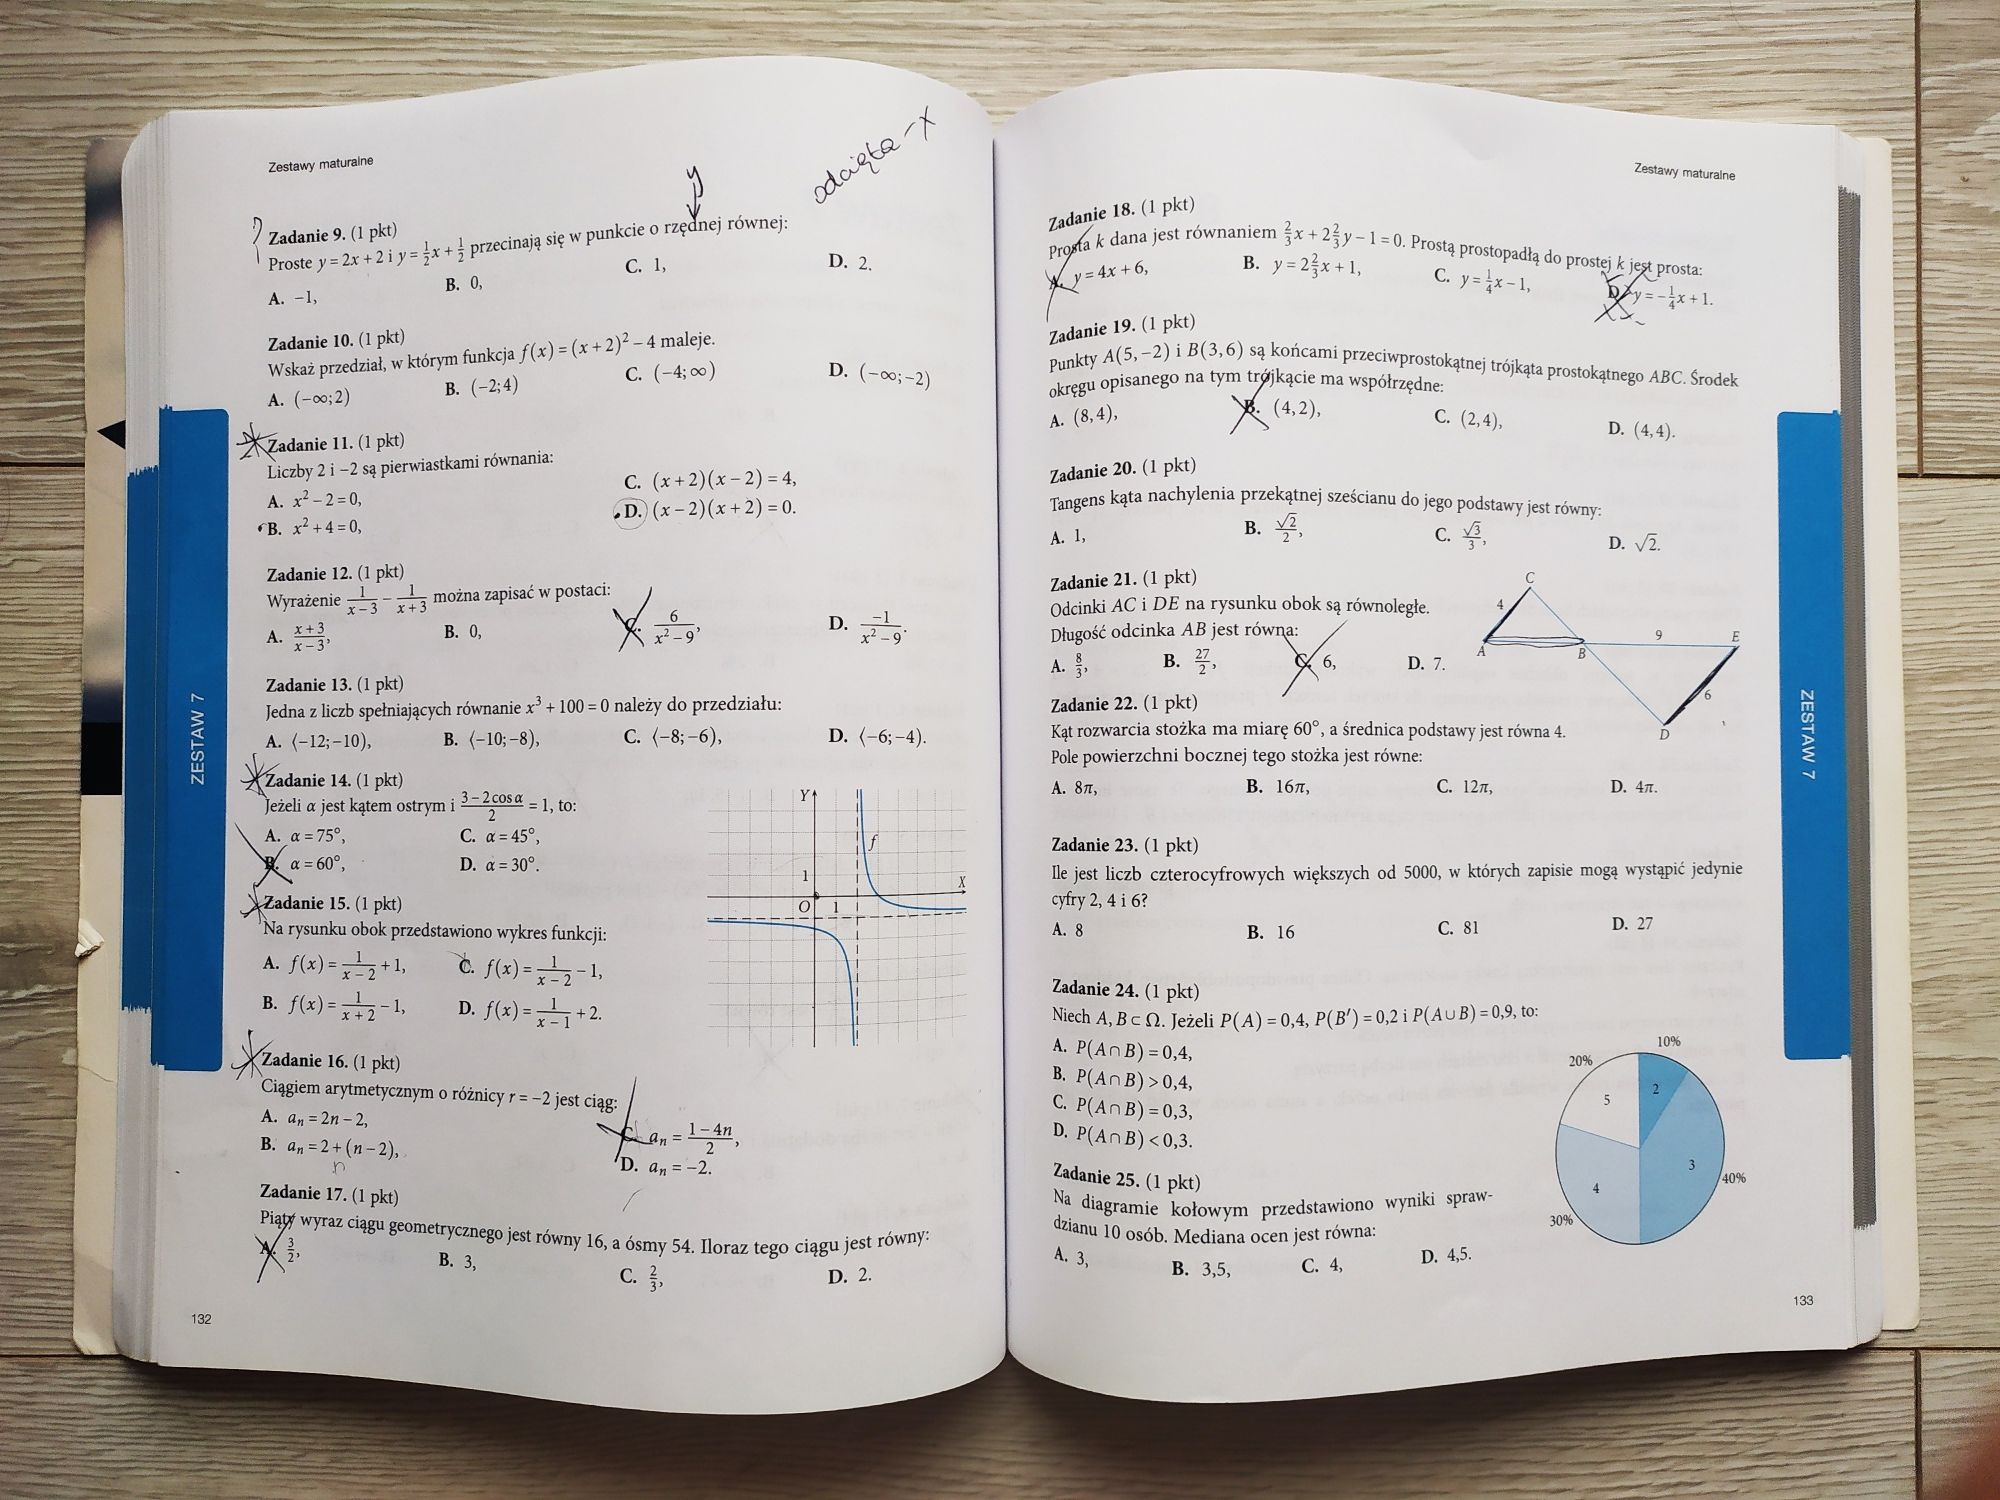 Zestawy maturalne
odcięta - x
y
? Zadanie 9. (1 pkt)
Proste y = 2x + 2 i y = 1/2 x + 1/2 przecinają się w punkcie o rzędnej równej:
A. −1, B. 0, C. 1, D. 2.
Zadanie 10. (1 pkt)
Wskaż przedział, w którym funkcja f(x) = (x + 2)² − 4 maleje.
A. (−∞; 2) B. (−2; 4) C. (−4; ∞) D. (−∞; −2)
Zadanie 11. (1 pkt)
Liczby 2 i −2 są pierwiastkami równania:
A. x² − 2 = 0, C. (x + 2)(x − 2) = 4,
B. x² + 4 = 0, D. (x − 2)(x + 2) = 0.
Zadanie 12. (1 pkt)
Wyrażenie 1/(x − 3) − 1/(x + 3) można zapisać w postaci:
A. (x + 3)/(x − 3), B. 0, C. 6/(x² − 9), D. −1/(x² − 9).
Zadanie 13. (1 pkt)
Jedna z liczb spełniających równanie x³ + 100 = 0 należy do przedziału:
A. ⟨−12; −10), B. ⟨−10; −8), C. ⟨−8; −6), D. ⟨−6; −4).
Zadanie 14. (1 pkt)
Jeżeli α jest kątem ostrym i (3 − 2cos α)/2 = 1, to:
A. α = 75°, C. α = 45°,
B. α = 60°, D. α = 30°.
Y
f
1
X
O 1
Zadanie 15. (1 pkt)
Na rysunku obok przedstawiono wykres funkcji:
A. f(x) = 1/(x − 2) + 1, C. f(x) = 1/(x − 2) − 1,
B. f(x) = 1/(x + 2) − 1, D. f(x) = 1/(x − 1) + 2.
Zadanie 16. (1 pkt)
Ciągiem arytmetycznym o różnicy r = −2 jest ciąg:
A. aₙ = 2n − 2, C. aₙ = (1 − 4n)/2,
B. aₙ = 2 + (n − 2), D. aₙ = −2.
n
Zadanie 17. (1 pkt)
Piąty wyraz ciągu geometrycznego jest równy 16, a ósmy 54. Iloraz tego ciągu jest równy:
A. 3/2, B. 3, C. 2/3, D. 2.
132
ZESTAW 7
Zestawy maturalne
Zadanie 18. (1 pkt)
Prosta k dana jest równaniem 2/3 x + 2 2/3 y − 1 = 0. Prostą prostopadłą do prostej k jest prosta:
A. y = 4x + 6, B. y = 2 2/3 x + 1, C. y = 1/4 x − 1, D. y = −1/4 x + 1.
Zadanie 19. (1 pkt)
Punkty A(5, −2) i B(3, 6) są końcami przeciwprostokątnej trójkąta prostokątnego ABC. Środek
okręgu opisanego na tym trójkącie ma współrzędne:
A. (8, 4), B. (4, 2), C. (2, 4), D. (4, 4).
Zadanie 20. (1 pkt)
Tangens kąta nachylenia przekątnej sześcianu do jego podstawy jest równy:
A. 1, B. √2/2, C. √3/3, D. √2.
Zadanie 21. (1 pkt)
Odcinki AC i DE na rysunku obok są równoległe.
Długość odcinka AB jest równa:
A. 8/3, B. 27/2, C. 6, D. 7.
C
4
9
A B E
6
D
Zadanie 22. (1 pkt)
Kąt rozwarcia stożka ma miarę 60°, a średnica podstawy jest równa 4.
Pole powierzchni bocznej tego stożka jest równe:
A. 8π, B. 16π, C. 12π, D. 4π.
Zadanie 23. (1 pkt)
Ile jest liczb czterocyfrowych większych od 5000, w których zapisie mogą wystąpić jedynie
cyfry 2, 4 i 6?
A. 8 B. 16 C. 81 D. 27
Zadanie 24. (1 pkt)
Niech A, B ⊂ Ω. Jeżeli P(A) = 0,4, P(B′) = 0,2 i P(A ∪ B) = 0,9, to:
A. P(A ∩ B) = 0,4,
B. P(A ∩ B) > 0,4,
C. P(A ∩ B) = 0,3,
D. P(A ∩ B) < 0,3.
Zadanie 25. (1 pkt)
Na diagramie kołowym przedstawiono wyniki spraw-
dzianu 10 osób. Mediana ocen jest równa:
A. 3, B. 3,5, C. 4, D. 4,5.
10%
20%
2
5
3
40%
4
30%
133
ZESTAW 7